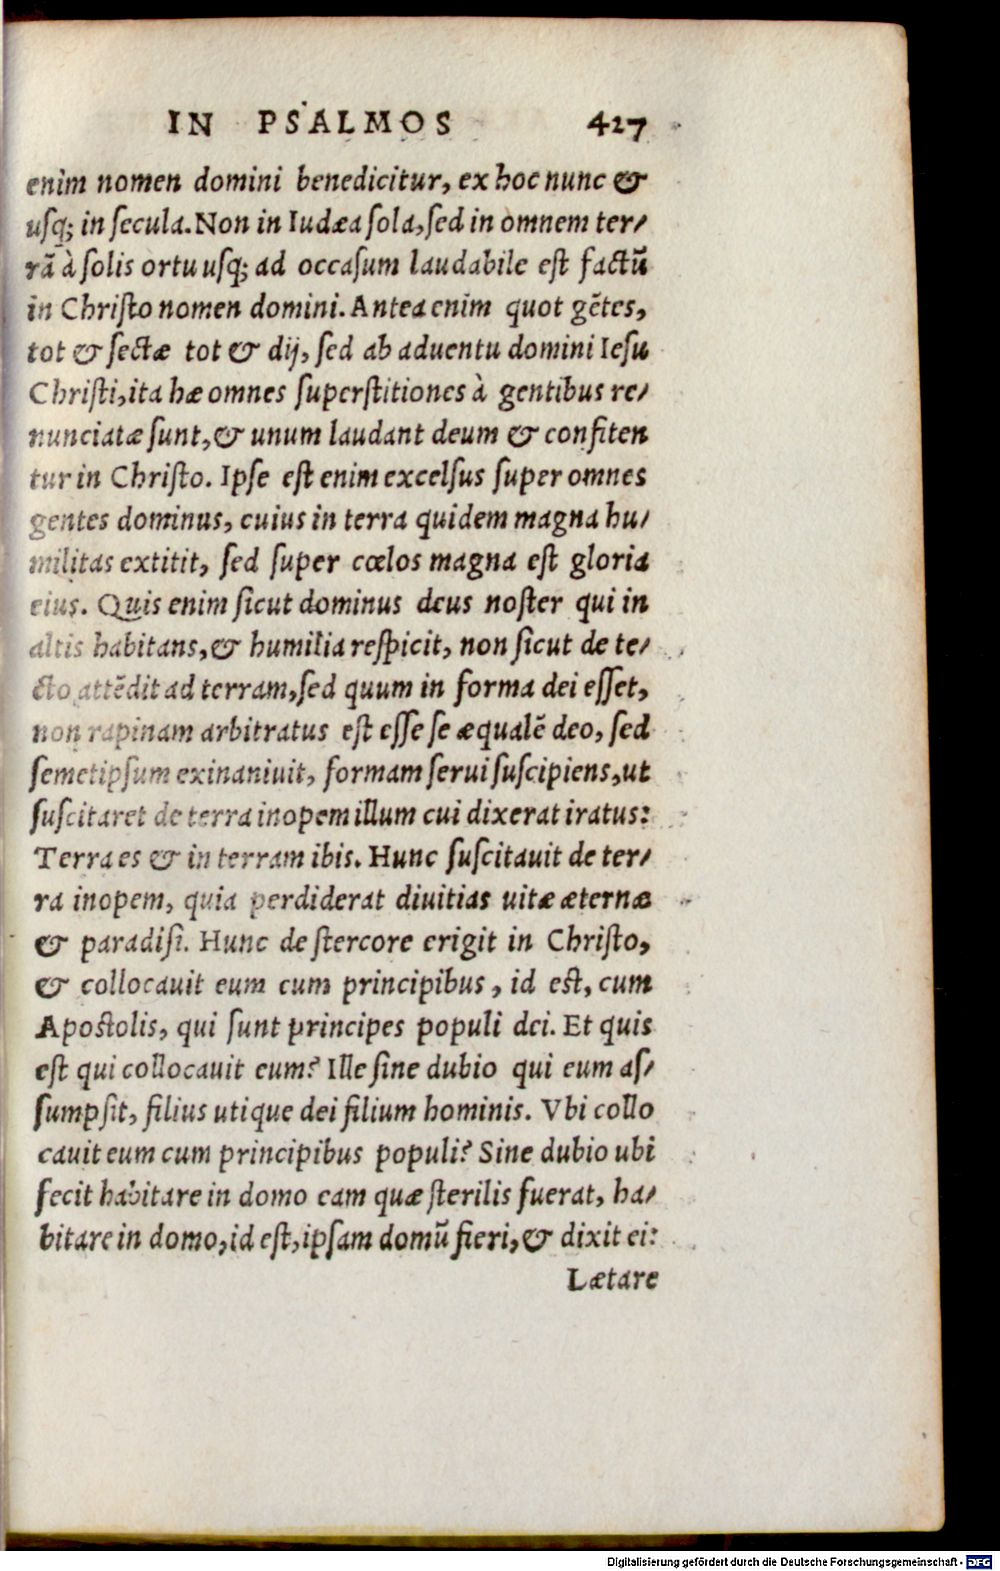 IN PSALMOS 427
enim nomen domini benedicitur, ex hoc nunc &
usq; in secula. Non in Iudæa sola, sed in omnem ter/
rã à solis ortu usq; ad occasum laudabile est factũ
in Christo nomen domini. Antea enim quot gẽtes,
tot & sectæ tot & dij, sed ab aduentu domini Iesu
Christi, ita hæ omnes superstitiones à gentibus re/
nunciatæ sunt, & unum laudant deum & confiten
tur in Christo. Ipse est enim excelsus super omnes
gentes dominus, cuius in terra quidem magna hu/
militas extitit, sed super cœlos magna est gloria
eius. Quis enim sicut dominus deus noster qui in
altis habitans, & humilia respicit, non sicut de te/
cto attẽdit ad terram, sed quum in forma dei esset,
non rapinam arbitratus est esse se æqualẽ deo, sed
semetipsum exinaniuit, formam serui suscipiens, ut
suscitaret de terra inopem illum cui dixerat iratus:
Terra es & in terram ibis. Hunc suscitauit de ter/
ra inopem, quia perdiderat diuitias uitæ æternæ
& paradisi. Hunc de stercore erigit in Christo,
& collocauit eum cum principibus, id est, cum
Apostolis, qui sunt principes populi dei. Et quis
est qui collocauit eum? Ille sine dubio qui eum as/
sumpsit, filius utique dei filium hominis. Vbi collo
cauit eum cum principibus populi? Sine dubio ubi
fecit habitare in domo eam quæ sterilis fuerat, ha/
bitare in domo, id est, ipsam domũ fieri, & dixit ei:
Lætare
Digitalisierung gefördert durch die Deutsche Forschungsgemeinschaft - DFG